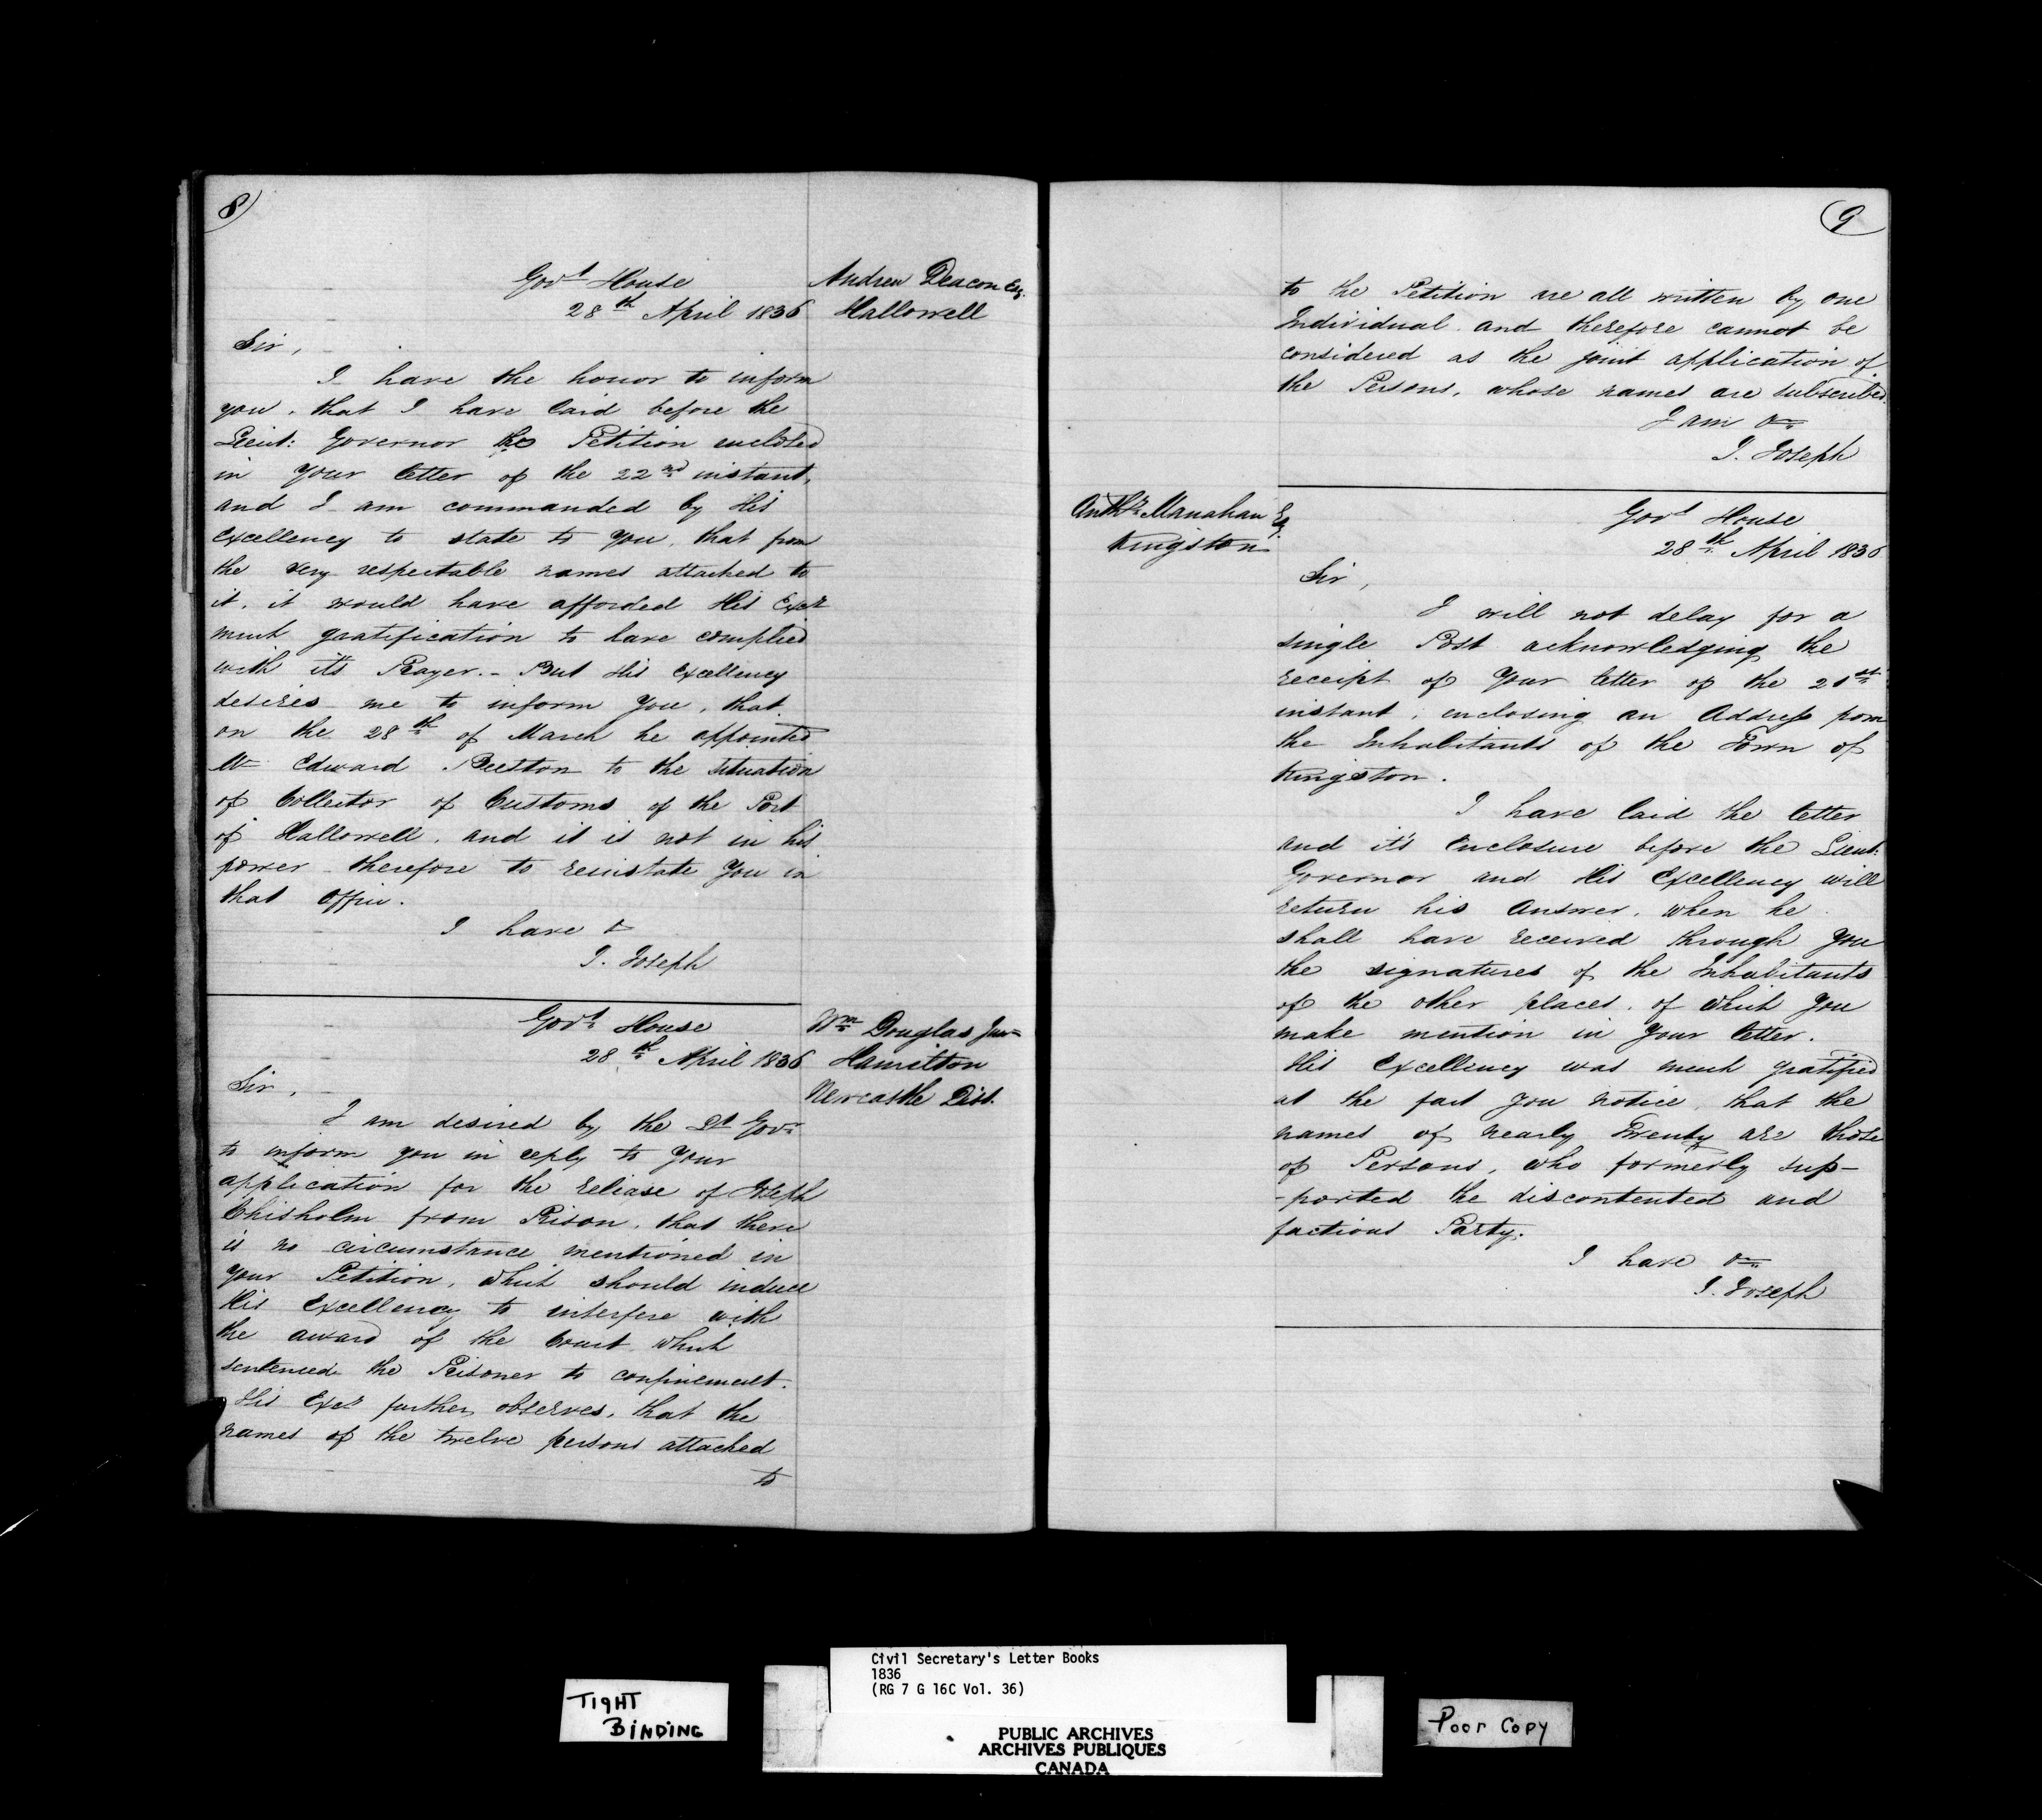 8)
Govt House
28th April 1836
Andrew Deacon Esq.
Hallowell
Sir,
I have the honor to inform
you, that I have laid before the
Lieut: Governor the Petition enclosed
in your letter of the 22nd instant,
and I am commanded by His
Excellency to state to you, that from
the very respectable names attached to
it, it would have afforded His Excy
much gratification to have complied
with it's Prayer. - But His Excellency
desires me to inform you, that
on the 28th of March he appointed
Mr Edward Beeston to the situation
of Collector of Customs of the Port
of Hallowell, and it is not in his
power therefore to reinstate You in
that Office.
I have &
J. Joseph
Govt House
28th April 1836
Wm Douglas Junr
Hamilton
Newcastle Dist.
Sir,
I am desired by the Lt Govr
to inform you in reply to Your
application for the release of Joseph
Chisholm from Prison, that there
is no circumstance mentioned in
Your Petition, which should induce
His Excellency to interfere with
the award of the Court which
sentenced the Prisoner to confinement.
His Excy further observes, that the
names of the twelve persons attached
to
9
to the Petition are all written by one
Individual and therefore cannot be
considered as the joint application of
the Persons, whose names are subscribed.
I am &c
J. Joseph
Anthy Manahan Esq.
Kingston
Govt House
28th April 1836
Sir,
I will not delay for a
single Post acknowledging the
receipt of Your letter of the 21st
instant, enclosing an Address from
the Inhabitants of the Town of
Kingston.
I have laid the letter
and it's Enclosure before the Lieut:
Governor and His Excellency will
return his Answer, when he
shall have received through You
the signatures of the Inhabitants
of the other places, of which You
make mention in Your letter.
His Excellency was much gratified
at the fact you notice, that the
names of nearly Twenty are those
of Persons, who formerly sup-
-ported the discontented and
factious Party.
I have &c
J. Joseph
TIGHT
BINDING
Civil Secretary's Letter Books
1836
(RG 7 G 16C Vol. 36)
PUBLIC ARCHIVES
ARCHIVES PUBLIQUES
CANADA
Poor Copy